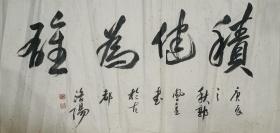 積健為雄
庚辰
之
秋
書
於古
都
洛陽